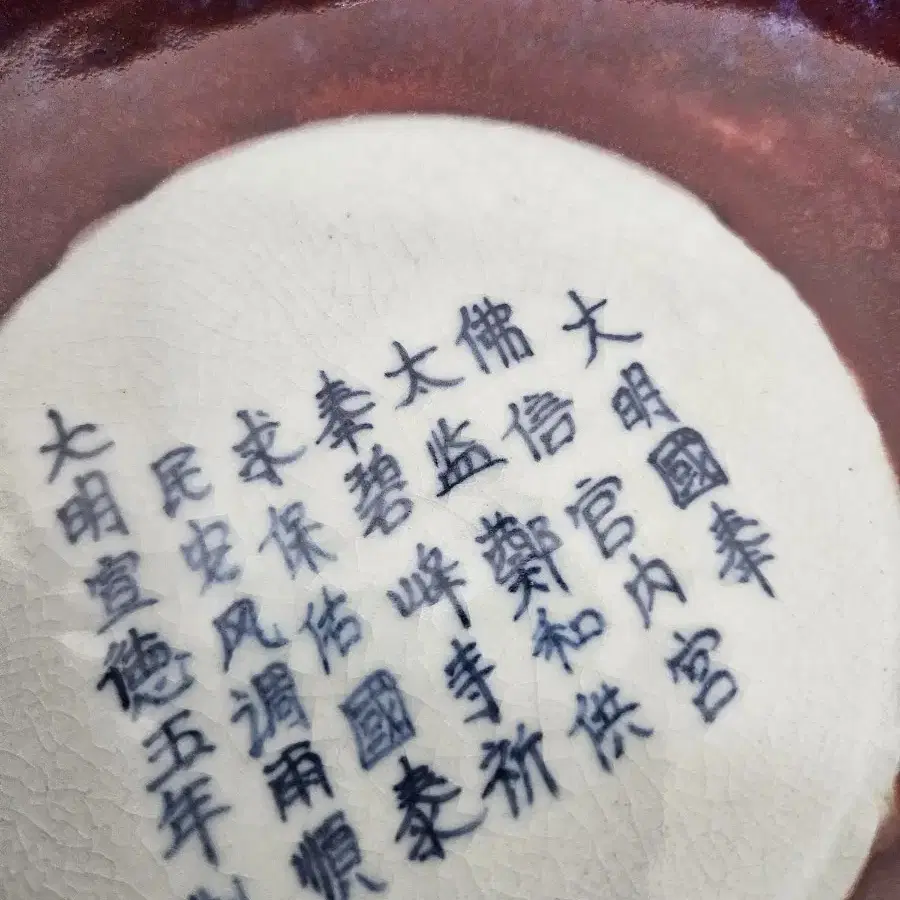 大明國奉
佛信官内宮
太监鄭和供
奉碧峰寺祈
求保佑國泰
民安风调雨順
大明宣德五年